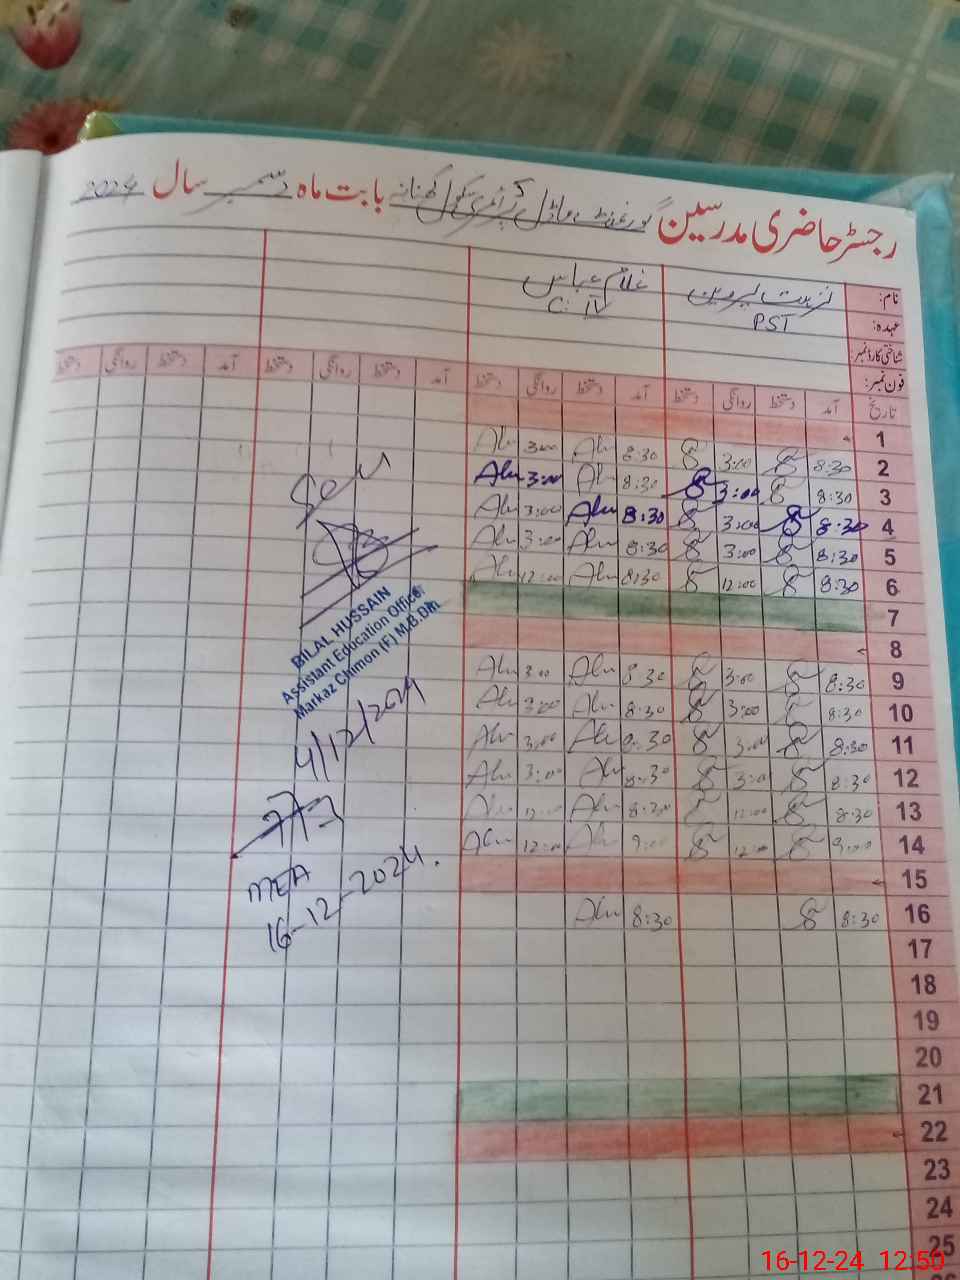 رجسٹر حاضری مدرسین گورنمنٹ ماڈل پرائمری سکول بابت ماہ دسمبر سال 2024
نام: نزہت پروین غلام عباس
عہدہ: PST C: IV
شناختی کارڈ نمبر:
فون نمبر:
تاریخ آمد دستخط روانگی دستخط آمد دستخط روانگی دستخط آمد دستخط روانگی دستخط آمد دستخط روانگی دستخط
1
2 8:30 3:00 8:30 3:00
3 8:30 3:00 8:30 3:00
4 8:30 3:00 8:30 3:00
5 8:30 3:00 8:30 3:00
6 8:30 12:00 8:30 12:00
7
8
9 8:30 3:00 8:30 3:00
10 8:30 3:00 8:30 3:00
11 8:30 3:00 8:30 3:00
12 8:30 3:00 8:30 3:00
13 8:30 12:00 8:30
14 9:00 12:00 9:00 12:00
15
16 8:30 8:30
17
18
19
20
21
22
23
24
25
BILAL HUSSAIN
Assistant Education Officer
Markaz Chimon (F) M.B.Din
4/12/2024
773
MEA
16-12-2024.
16-12-24 12:50